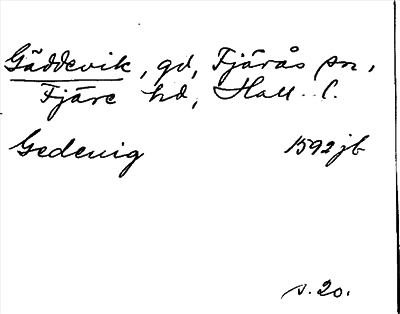 Gäddevik, gd, Fjärås sn,
Fjäre hd, Hall. l.
Gedenig 1592 jb
s. 20.